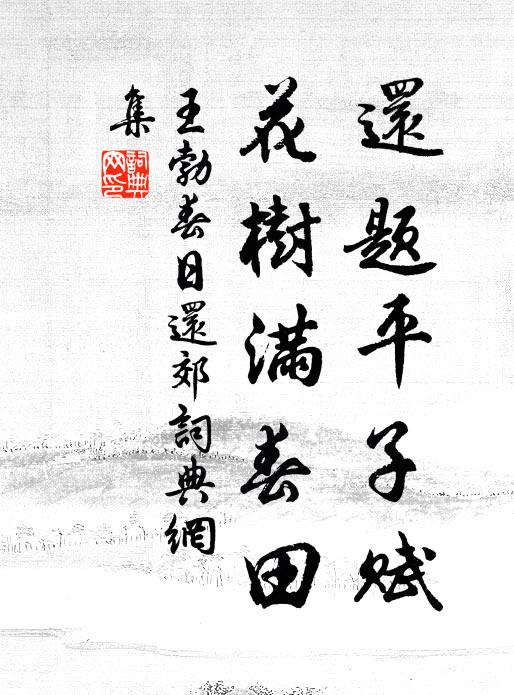 還題平子賦
花樹滿春田
王勃春日還郊詞典網
集
詞典
网印